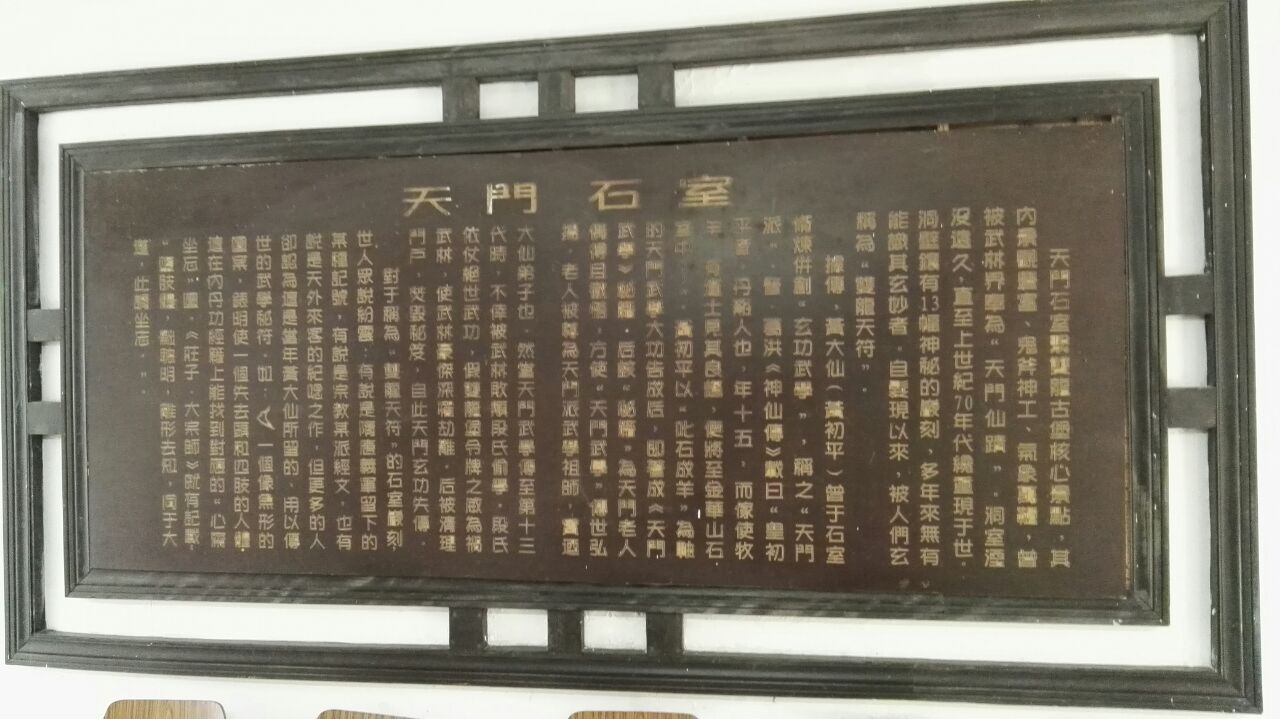 天門石室
天門石室爲雙龍古堡核心景點，其
內景觀豐富、鬼斧神工、氣象萬
被武林界尊為“天門仙蹟”。洞室湮
沒遠久，直至上世紀70年代纔重現于世。
洞壁鐫有13幅神秘的巖刻，多年來無有
能識其玄妙者。自髮現以來，被人們玄
稱為“雙龍天符”。
據傳，黃大仙（黃初平）曾于石室
修煉併創“玄功武學”，稱之“天門
派”。晉 葛洪《神仙傳》載曰“皇初
平者，丹谿人也，年十五，而傢使牧
羊，有道士見其良謹，便將至金華山石
室中…”黃初平以“叱石成羊”為軸
的天門武學大功皆成后，即著成《天門
武學》秘籍。后該“秘籍”為天門老人
方使“天門武學”傳世弘
揚，老人被尊為天門派武學祖師，
大仙弟子也。然當天門武學傳至第十三
代時，不倖被武林敗類段氏偷學，段氏
依仗絕世武功，假雙龍堡令牌之威為禍
武林，使武林豪傑深罹劫難，后被清理
門戶，焚毀秘笈，自此天門玄功失傳。
對于稱為“雙龍天符”的石室巖刻，
世人眾說紛雲：有說是隋唐義軍留下的
某種記號，有說是宗教某派經文，也有
說是天外來客的紀唸之作，但更多的人
卻認為這是當年黃大仙所留的，用以傳
世的武學秘符，如：一個像魚形的
圖案，錶明使一個失去頭和四肢的人體
這在內丹功經籍上能找到對應的“心齋
坐忘”圖《莊子·大宗師》就有記載，
“墮肢體，黜聰明，離形去知，同于大
道，此謂坐忘。”。